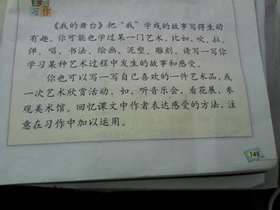 习作
《我的舞台》把“我”学戏的故事写得生动
有趣。你可能也学过某一门艺术，比如，吹、拉、
弹、唱，书法、绘画、泥塑、雕刻。请写一写你
学习某种艺术过程中发生的故事和感受。
你也可以写一写自己喜欢的一件艺术品，或
一次艺术欣赏活动，如，听音乐会、看花展、参
观美术馆。回忆课文中作者表达感受的方法，注
意在习作中加以运用。
149